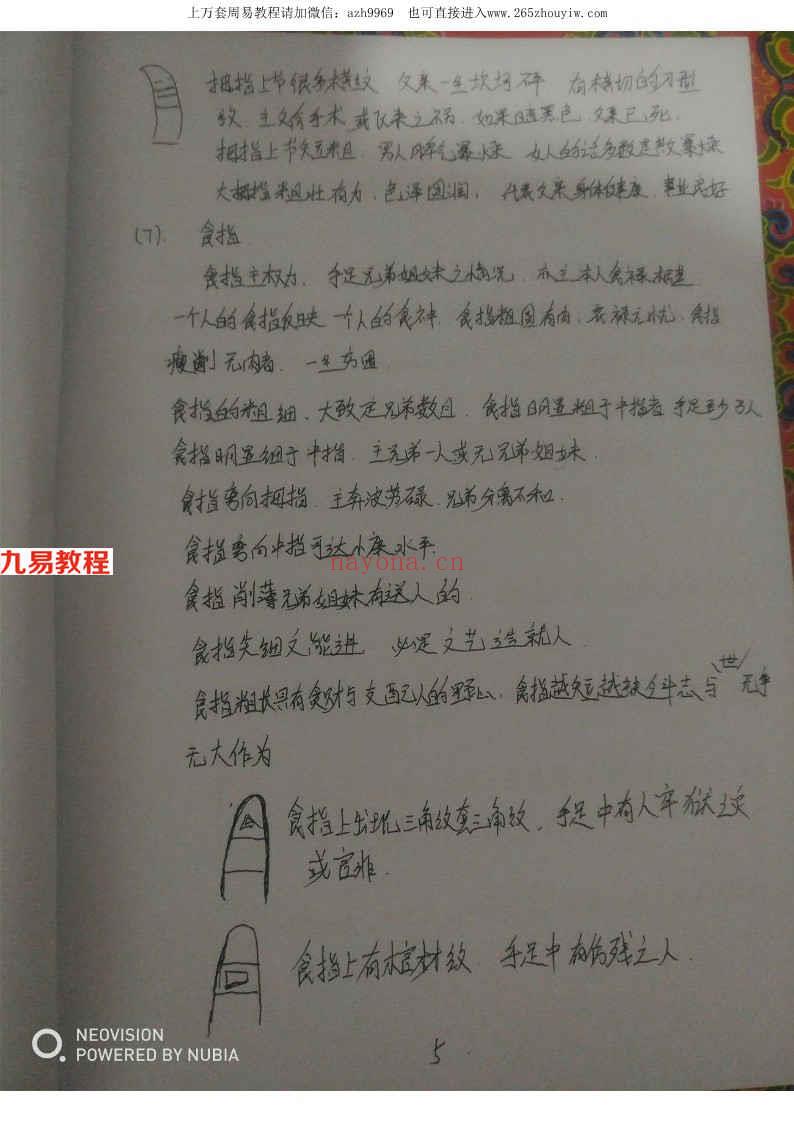 上万套周易教程请加微信：azh9969 也可直接进入www.265zhouyiw.com
拇指上节很多横纹 父亲一生坎坷 有横切的刀型
纹 主父有手术 或飞来之祸 如果暗黑色 父亲已死
拇指上节短粗 男人脾气暴燥 女人的话多数是教暴燥
大拇指粗壮有力，色泽圆润， 代表父亲身体健康，事业良好
(7). 食指
食指主权力，手足兄弟姐妹之情况 亦主本人食禄
一个人的食指反映一个人的食神，食指粗圆有肉，衣禄无忧，食指
瘦削无肉者，一生穷困
食指的粗细，大致定兄弟数目，食指明显粗于中指者 手足至少3人
食指明显细于中指，主兄弟一人或无兄弟姐妹．
食指弯向拇指，主奔波劳碌，兄弟分离不和．
食指弯向中指可达小康水平．
九易教程
nayona.cn
食指削薄兄弟姐妹有送人的．
食指尖细又 必定文艺造就人．
食指粗长具有贪财与支配人的野心，食指越短越缺乏斗志与世无争
无大作为
食指上出现三角纹套三角纹，手足中有人牢狱之灾
或官非．
食指上有棺材纹 手足中有伤残之人．
5
NEOVISION
POWERED BY NUBIA